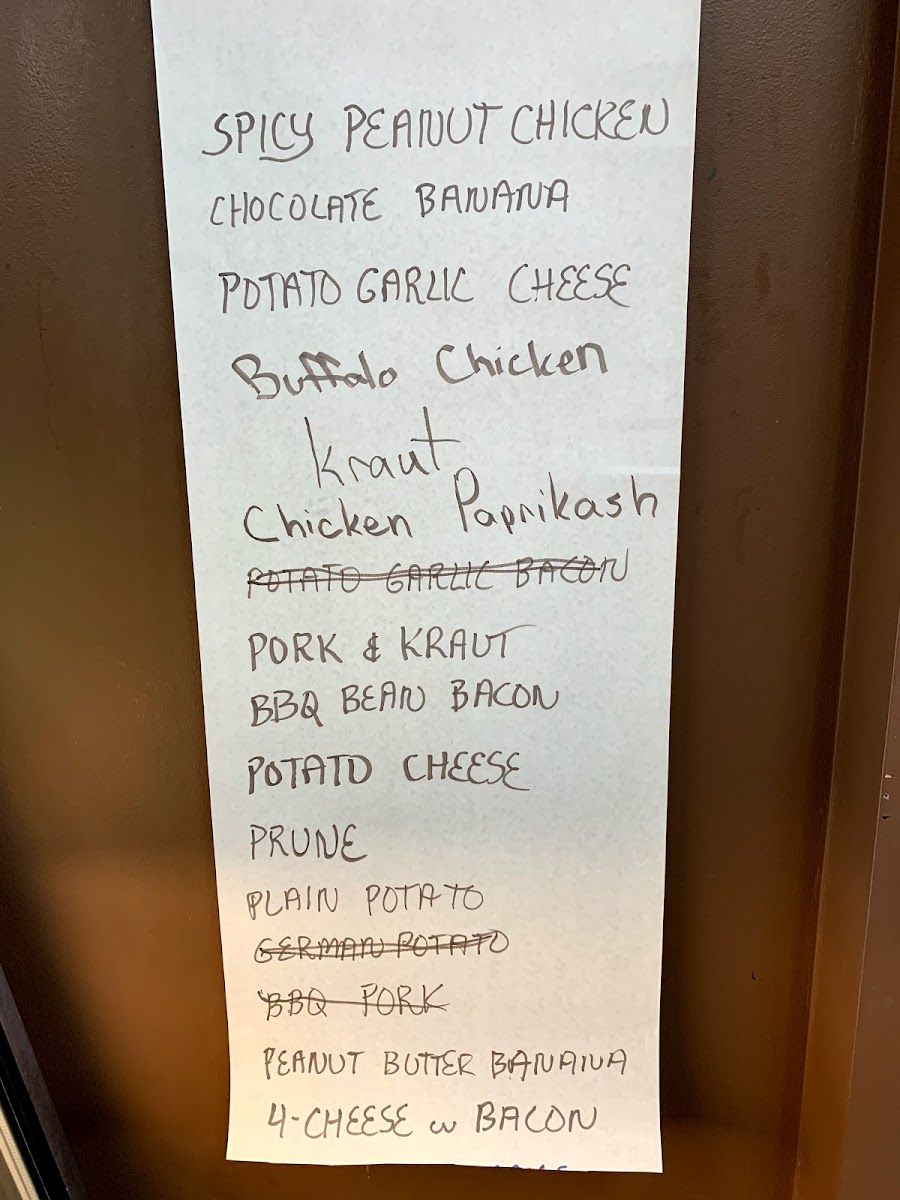 SPICY PEANUT CHICKEN
CHOCOLATE BANANA
POTATO GARLIC CHEESE
Buffalo Chicken
Kraut
Chicken Paprikash
POTATO GARLIC BACON
PORK & KRAUT
BBQ BEAN BACON
POTATO CHEESE
PRUNE
PLAIN POTATO
GERMAN POTATO
BBQ PORK
PEANUT BUTTER BANANA
4-CHEESE w BACON